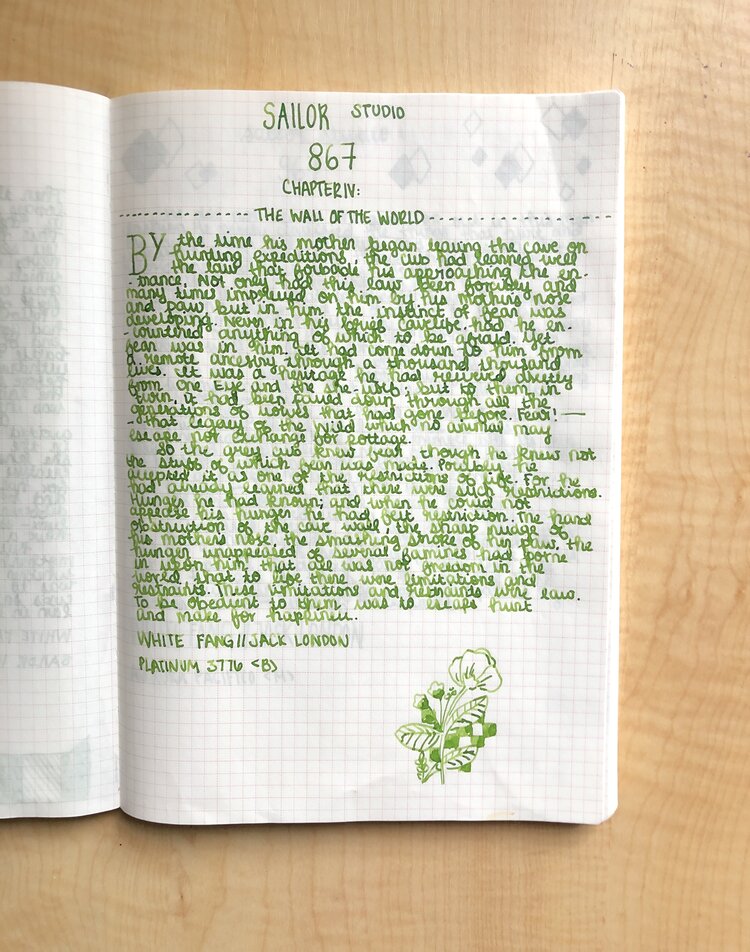 SAILOR STUDIO
867
CHAPTER IV:
THE WALL OF THE WORLD
BY the time his mother began leaving the cave on
hunting expeditions, the cub had learned well
the law that forbade his approaching the en-
trance. Not only had this law been forcibly and
many times impressed on him by his mother's nose
and paw, but in him the instinct of fear was
developing. Never, in his brief cavelife, had he en-
countered anything of which to be afraid. Yet
fear was in him. It had come down to him from
a remote ancestry through a thousand thousand
lives. It was a heritage he had received directly
from One Eye and the she-wolf; but to them, in
turn, it had been passed down through all the
generations of wolves that had gone before. Fear! —
- that legacy of the Wild which no animal may
escape nor exchange for pottage.
So the grey cub knew fear, though he knew not
the stuff of which fear was made. Possibly he
accepted it as one of the restrictions of life. For he
had already learned that there were such restrictions.
Hunger he had known; and when he could not
appease his hunger he had felt restriction. The hard
obstruction of the cave wall, the sharp nudge of
his mother's nose, the smashing stroke of her paw, the
hunger unappeased of several famines, had borne
in upon him that all was not freedom in the
world, that to life there were limitations and
restraints. These limitations and restraints were law.
To be obedient to them was to escape hurt
and make for happiness.
WHITE FANG // JACK LONDON
PLATINUM 3776 <B>